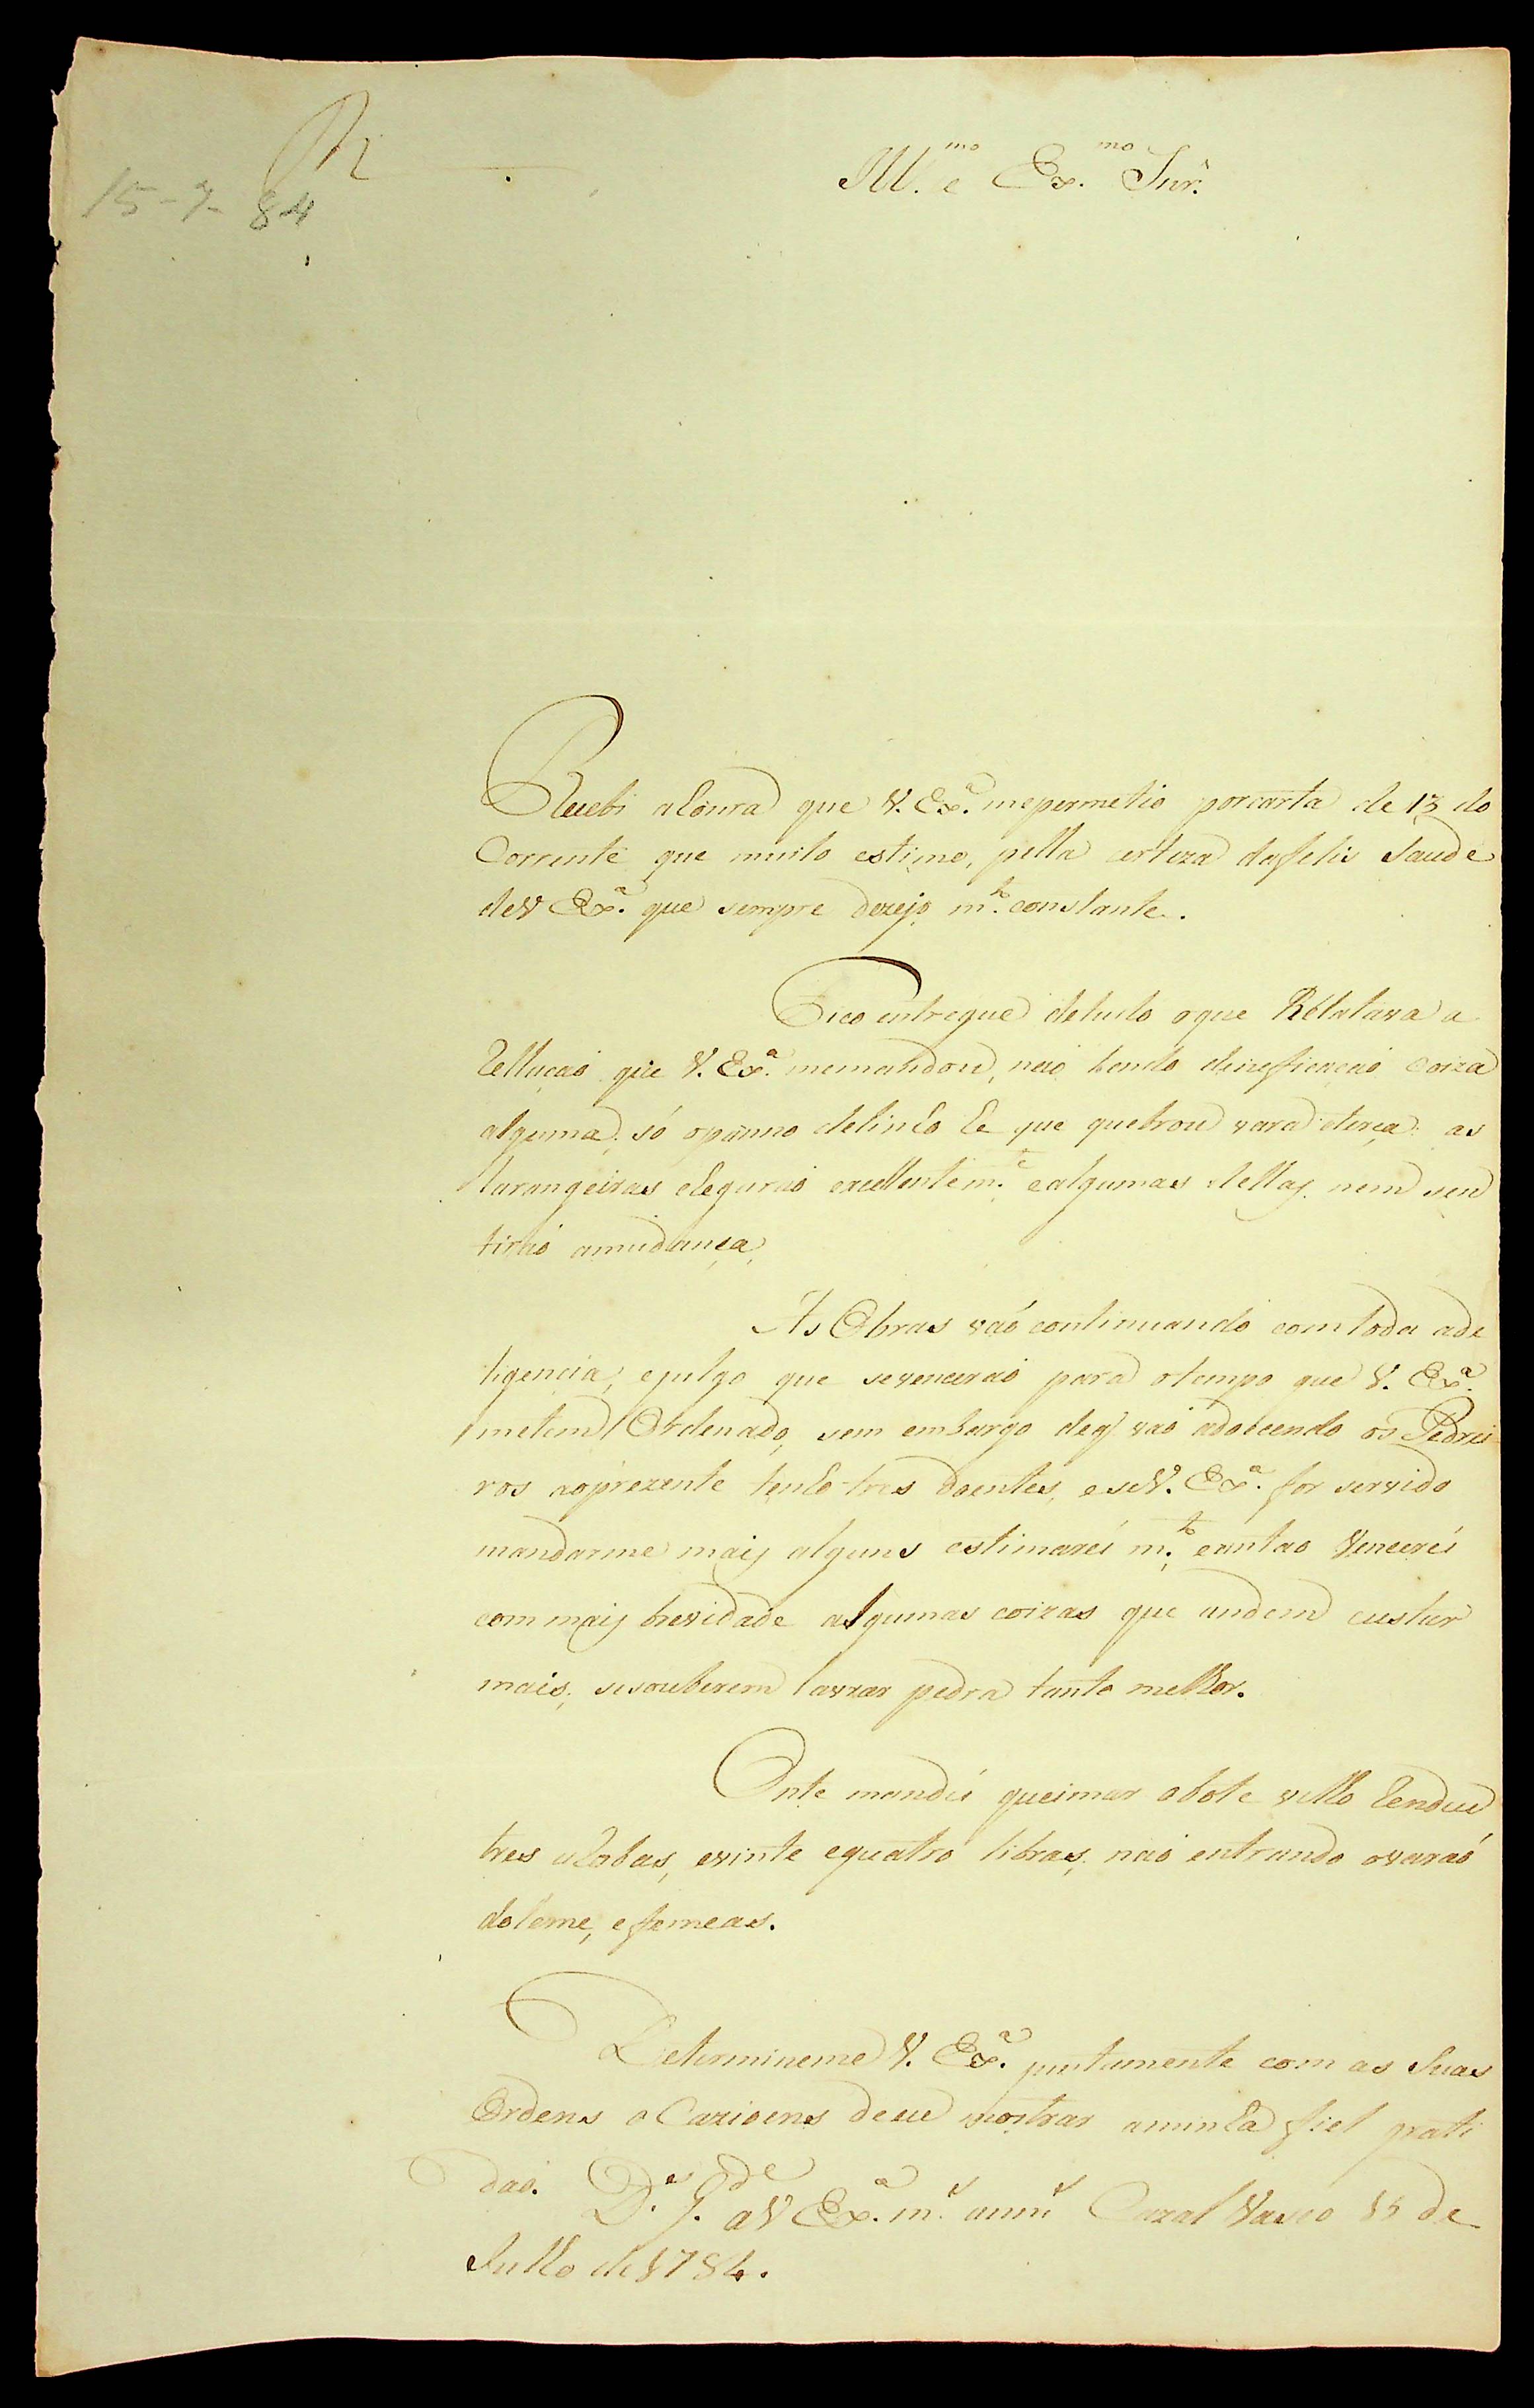 R
15-7-84
Ill.mo e Ex.mo Snr.
Recebi a honra que V. Ex.a me permetio por carta de 13 do
Corrente que muito estimo, pella certeza da felis Saude
de V Ex.a que sempre dezejo m.to constante.
Fico entregue de tudo o que Rélatava a
Rellaçaõ que V. Ex.a me mandou, naõ tendo dineficaçaõ coiza
alguma, só o panno de linho he que quebrou vara e terça: as
larangeiras chegaraõ excellentem.te e algumas dellas nem sen
tiraõ a mudança.
As Obras vaõ continuando com toda a de
ligencia, e julgo que se venceraõ para o tempo que V. Ex.a
me tem Ordenado, sem embargo de q vaõ adoecendo os Pedrei
ros ao prezente tenho tres doentes, e se V. Ex.a for servido
mandarme mais alguns estimarei m.to, e antao Vencerei
com mais brevidade algumas coizas que andem custar
mais, se souberem lavrar pedra tanto melhor.
Onte mandei queimar o bote velho Rendeu
tres arobas, e vinte e quatro libras, naõ entrando o varaõ
do leme, e femeas.
Determineme V. Ex.a juntamente com as Suas
Ordens o Cazioens de eu mostrar a minha fiel grati
daõ. D.s g.de a V Ex.a m.s ann.s Cazal Vasco 15 de
Julho de 1784.